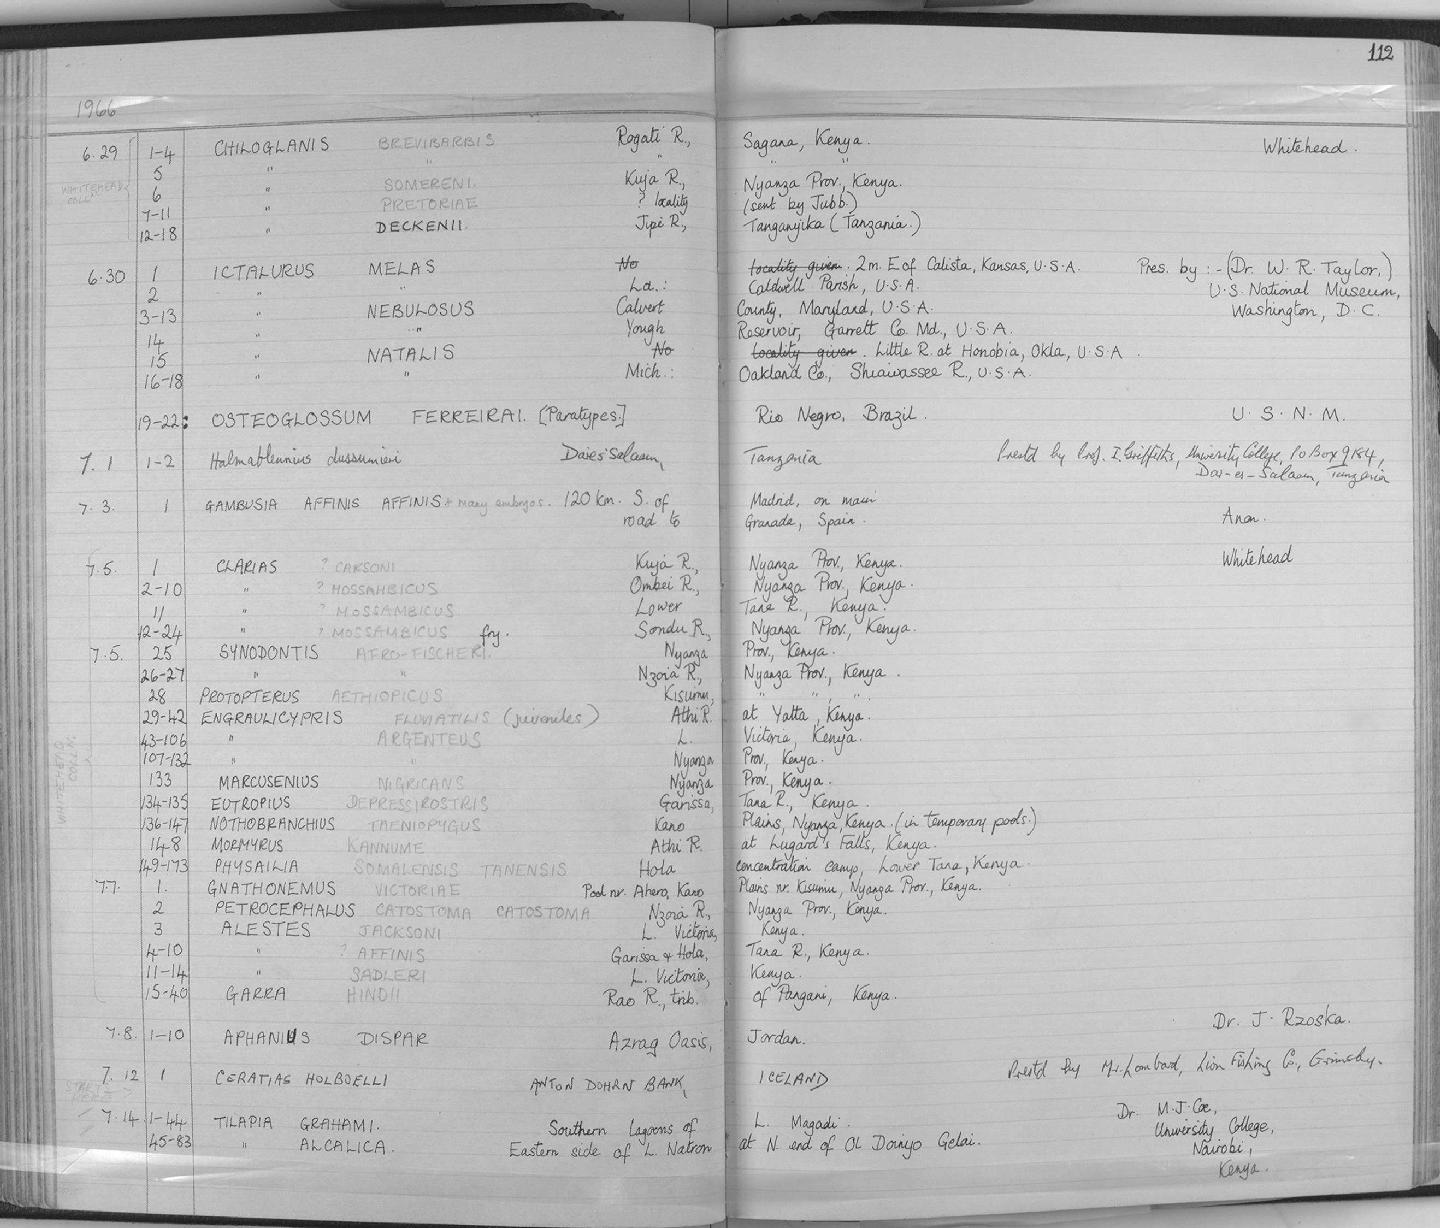 112
1966
6.29 1-4 CHILOGLANIS BREVIBARBIS Rogati R., Sagana, Kenya. Whitehead.
5 " " " " "
WHITEHEAD COLL^N 6 " SOMERENI. Kuja R., Nyanza Prov., Kenya.
7-11 " PRETORIAE ? locality (sent by Jubb.)
12-18 " DECKENII. Jipe R., Tanganyika (Tanzania.)
6.30 1 ICTALURUS MELAS No locality given. 2m. E of Calista, Kansas, U.S.A. Pres. by :- (Dr. W. R. Taylor,)
2 " " La.: Caldwell Parish, U.S.A. U.S. National Museum,
3-13 " NEBULOSUS Calvert County, Maryland, U.S.A. Washington, D.C.
14 " " Yough Reservoir, Garrett Co. Md., U.S.A.
15 " NATALIS No locality given. Little R. at Honobia, Okla, U.S.A.
16-18 " " Mich.: Oakland Co., Shiawassee R., U.S.A.
19-22: OSTEOGLOSSUM FERREIRAI. [Paratypes.] Rio Negro, Brazil. U.S.N.M.
7.1 1-2 Halmablennius dussumieri Dar es Salaam, Tanzania Prestd by Prof. I. Griffiths, University College, Po Box 9184,
Dar-es-Salaam, Tanzania
7.3. 1 GAMBUSIA AFFINIS AFFINIS + many embryos. 120 km. S. of Madrid, on main
road to Granada, Spain. Anon.
7.5. 1 CLARIAS ? CARSONI Kuja R., Nyanza Prov., Kenya. Whitehead
2-10 " ? MOSSAMBICUS Ombei R., Nyanza Prov., Kenya.
11 " ? MOSSAMBICUS Lower Tana R., Kenya.
12-24 " ? MOSSAMBICUS fry. Sondu R., Nyanza Prov., Kenya.
7.5. 25 SYNODONTIS AFRO-FISCHERI. Nyanza Prov., Kenya.
26-27 " " Nzoia R., Nyanza Prov., Kenya.
28 PROTOPTERUS AETHIOPICUS Kisumu, " " "
29-42 ENGRAULICYPRIS FLUVIATILIS (juveniles) Athi R. at Yatta, Kenya.
43-106 " ARGENTEUS L. Victoria, Kenya.
107-132 " " Nyanza Prov, Kenya.
WHITEHEAD COLL^N. 133 MARCUSENIUS NIGRICANS Nyanza Prov., Kenya.
134-135 EUTROPIUS DEPRESSIROSTRIS Garissa, Tana R., Kenya.
136-147 NOTHOBRANCHIUS TAENIOPYGUS Kano Plains, Nyanza, Kenya. (in temporary pools.)
148 MORMYRUS KANNUME Athi R. at Lugard's Falls, Kenya.
149-173 PHYSAILIA SOMALENSIS TANENSIS Hola concentration camp, Lower Tana, Kenya.
7.7. 1. GNATHONEMUS VICTORIAE Pool nr. Ahero, Kano Plains nr. Kisumu, Nyanza Prov., Kenya.
2 PETROCEPHALUS CATOSTOMA CATOSTOMA Nzoia R., Nyanza Prov., Kenya.
3 ALESTES JACKSONI L. Victoria, Kenya.
4-10 " ? AFFINIS Garissa & Hola, Tana R., Kenya.
11-14 " SADLERI L. Victoria, Kenya.
15-40 GARRA HINDII Rao R., trib. of Pangani, Kenya.
7.8. 1-10 APHANIUS DISPAR Azraq Oasis, Jordan. Dr. J. Rzoska.
7.12 1 CERATIAS HOLBOELLI ANTON DOHRN BANK, ICELAND Prestd by Mr. Lombard, Lion Fishing Co., Grimsby.
START HERE
7.14 1-44 TILAPIA GRAHAMI. Southern lagoons of L. Magadi. Dr. M.J. Coe,
45-83 " ALCALICA. Eastern side of L. Natron at N end of Ol Doinyo Gelai. University College,
Nairobi,
Kenya.